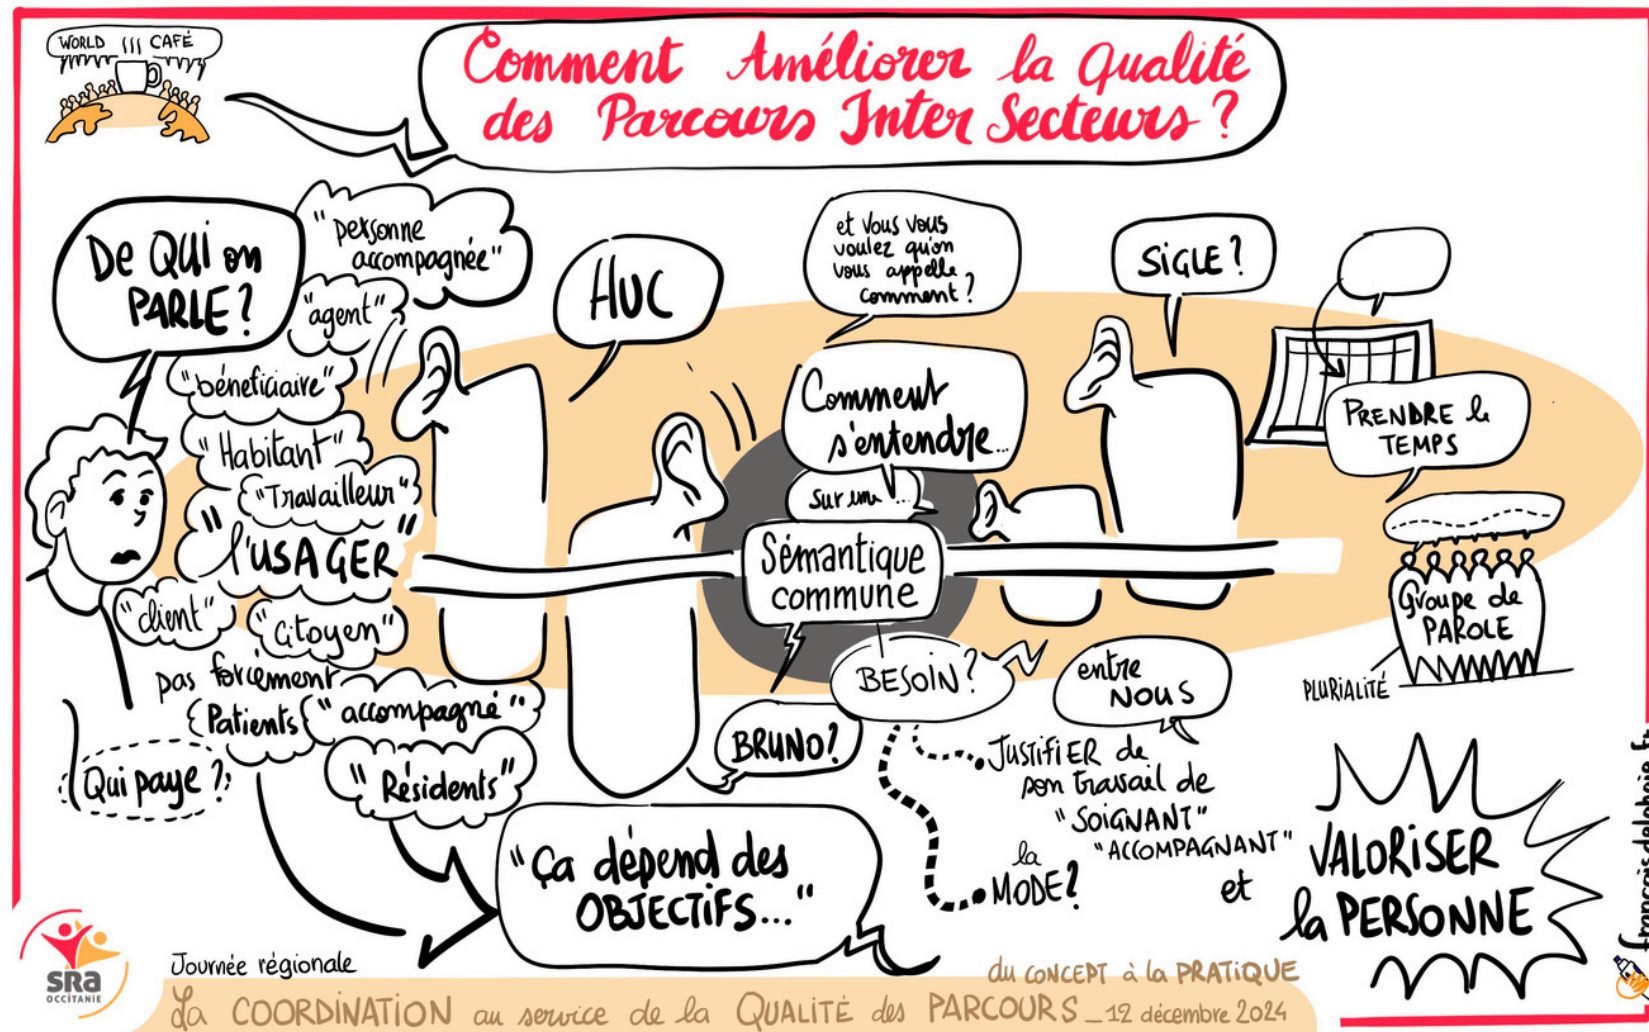 WORLD CAFÉ
Comment Améliorer la Qualité
des Parcours Inter Secteurs ?
De QUI on
PARLE ?
"personne
accompagnée"
"agent"
"béneficiaire"
"Habitant"
"Travailleur"
"l'USAGER"
"client"
"Citoyen"
pas forcément
Patients
"accompagné"
"Résidents"
Qui paye ?
HUC
et Vous vous
voulez qu'on
vous appelle
comment ?
Comment
s'entendre...
sur une...
Sémantique
commune
SIGLE ?
PRENDRE le
TEMPS
Groupe de
PAROLE
PLURIALITÉ
BESOIN ?
BRUNO ?
entre
NOUS
JUSTIFIER de
son travail de
"SOIGNANT"
"ACCOMPAGNANT"
la
MODE ?
et
VALORISER
la PERSONNE
"Ça dépend des
OBJECTIFS..."
sra
OCCITANIE
Journée régionale
du CONCEPT à la PRATIQUE
La COORDINATION au service de la QUALITÉ des PARCOURS _ 12 décembre 2024